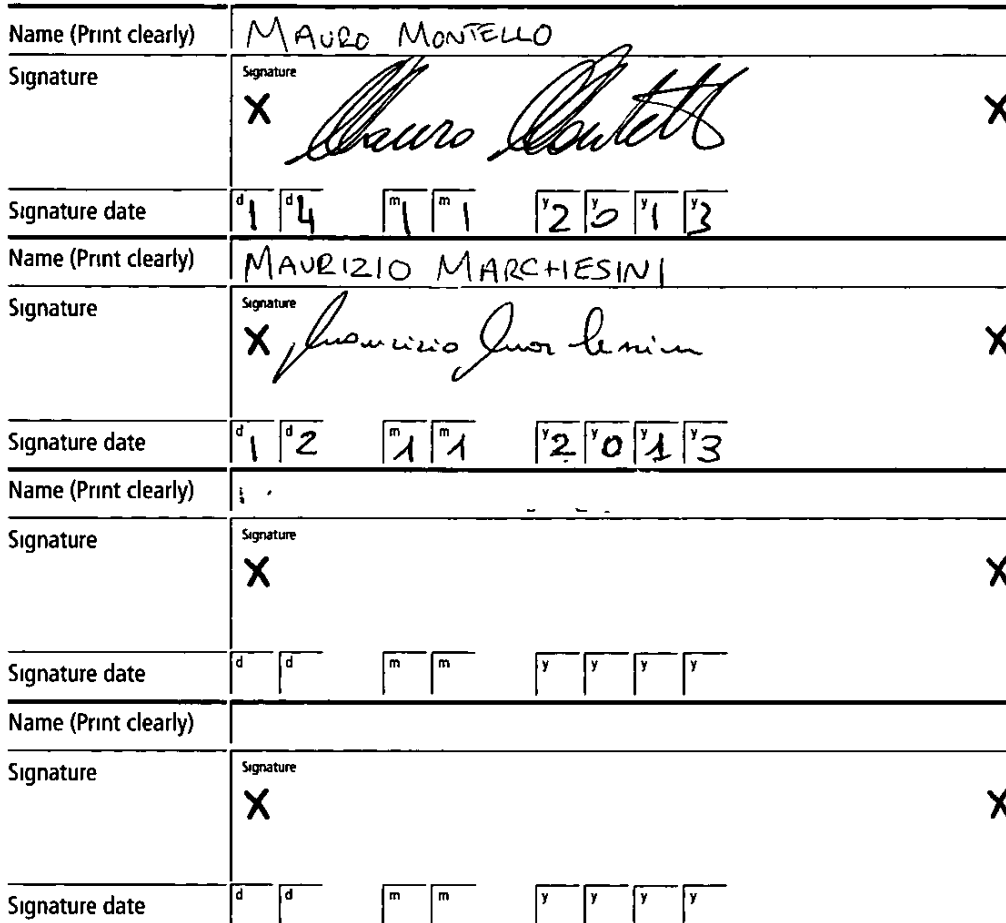 Name (Print clearly) MAURO MONTELLO
Signature Signature
X Mauro Montello X
Signature date d1 d4 m1 m1 y2 y0 y1 y3
Name (Print clearly) MAURIZIO MARCHESINI
Signature Signature
X Maurizio Marchesini X
Signature date d1 d2 m1 m1 y2 y0 y1 y3
Name (Print clearly)
Signature Signature
X X
Signature date d d m m y y y y
Name (Print clearly)
Signature Signature
X X
Signature date d d m m y y y y